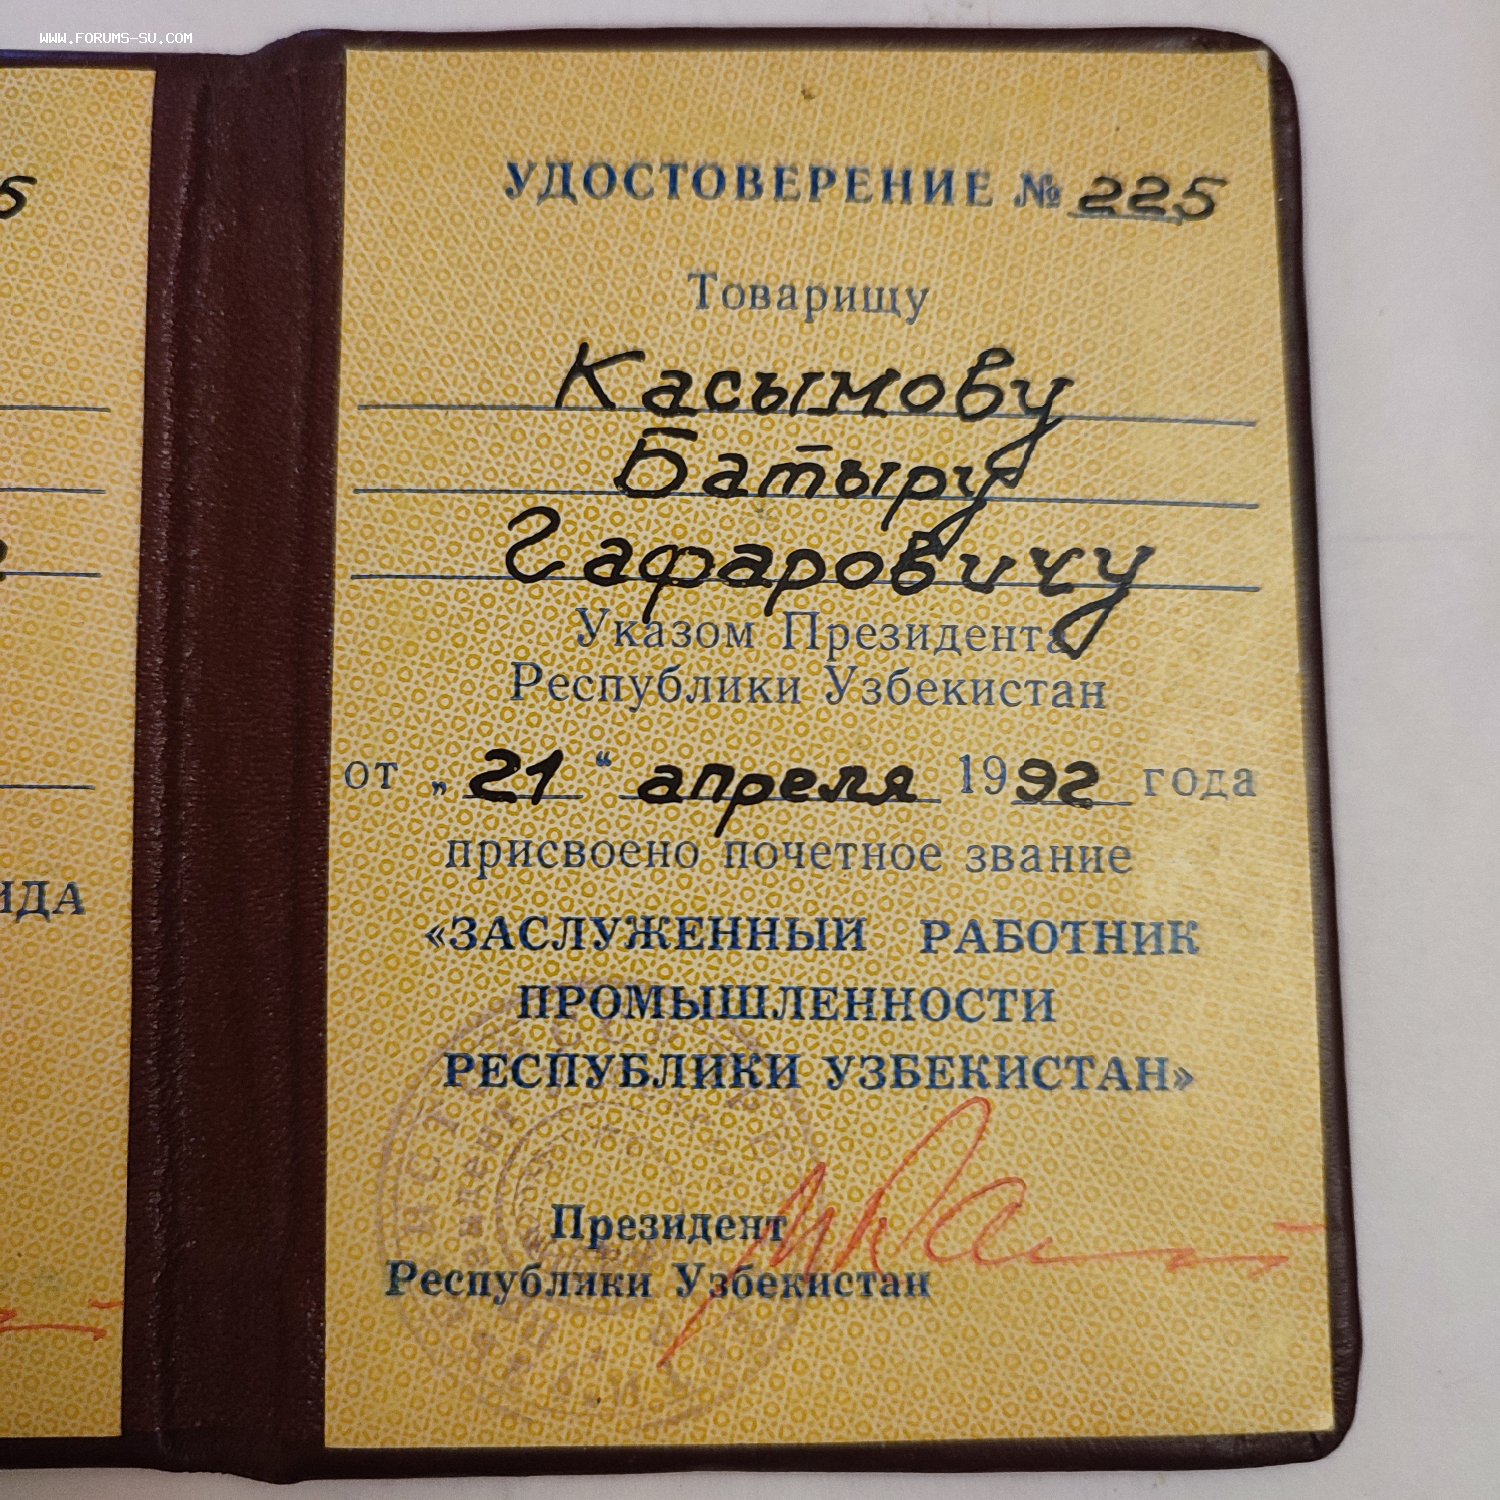 WWW.FORUMS-SU.COM
5
ИДА
УДОСТОВЕРЕНИЕ № 225
Товарищу
Касымову
Батыру
Гафаровичу
Указом Президента
Республики Узбекистан
от „21“ апреля 1992 года
присвоено почетное звание
«ЗАСЛУЖЕННЫЙ РАБОТНИК
ПРОМЫШЛЕННОСТИ
РЕСПУБЛИКИ УЗБЕКИСТАН»
Президент
Республики Узбекистан